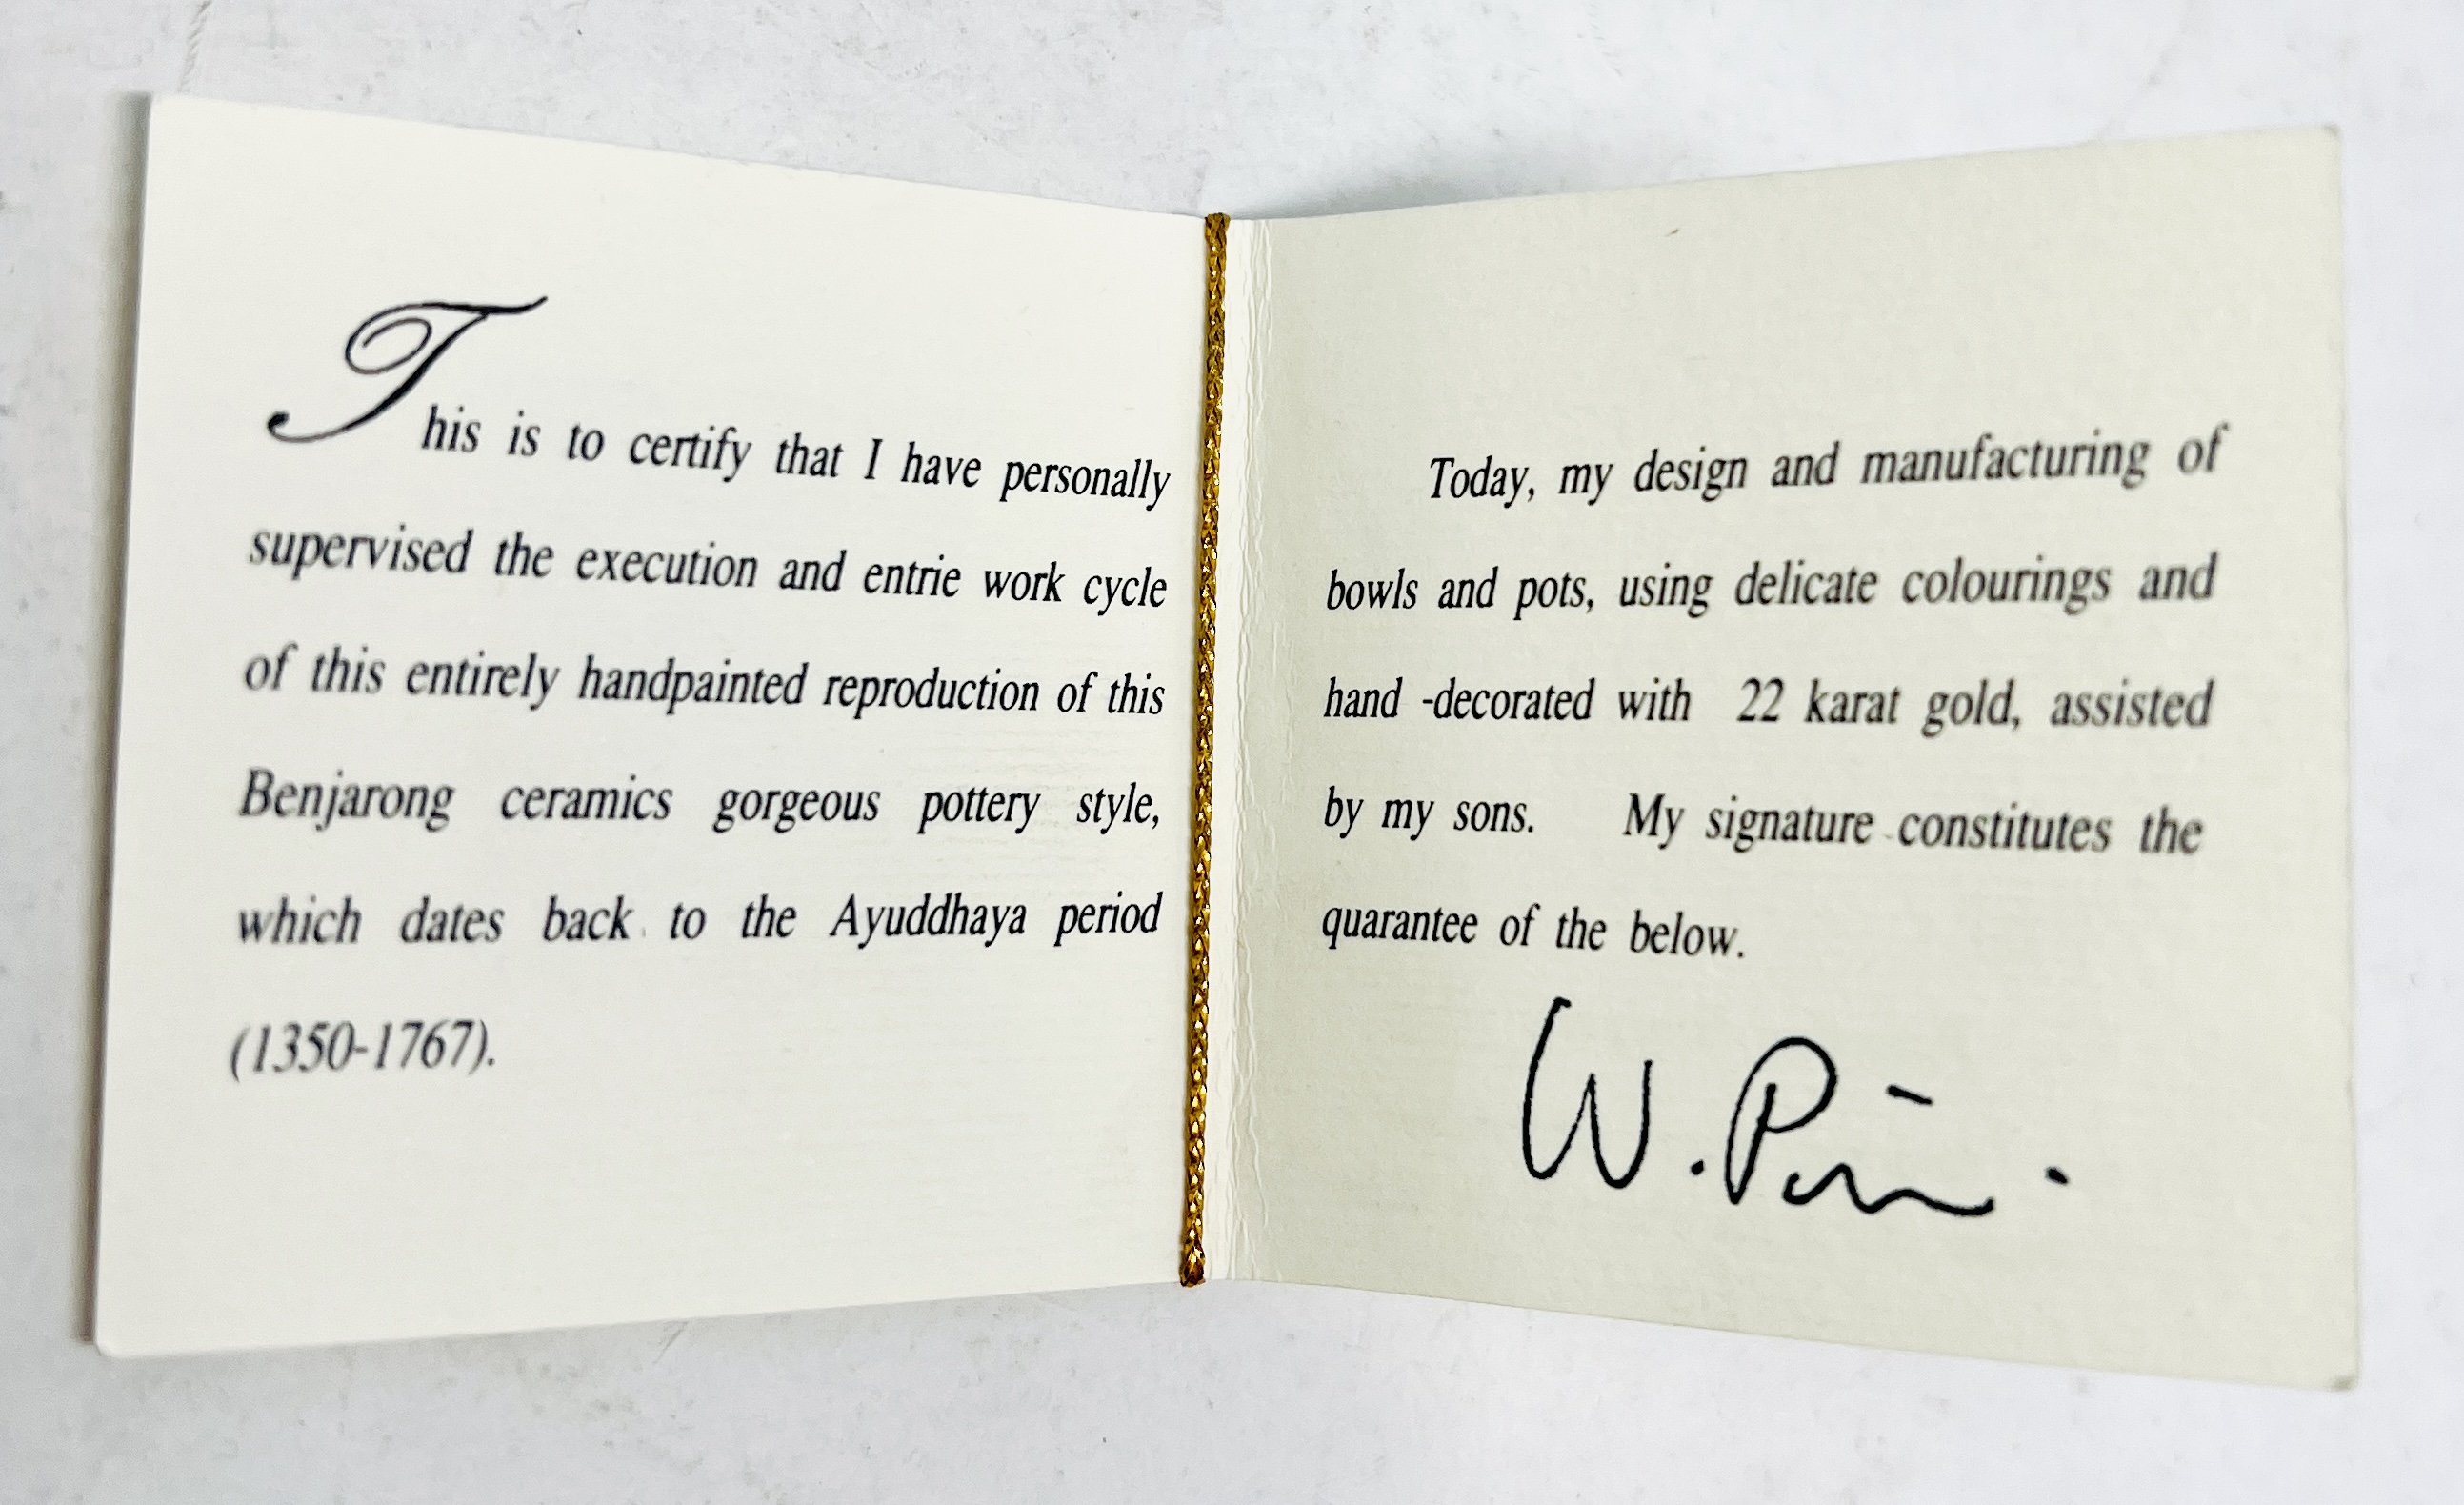 This is to certify that I have personally
supervised the execution and entrie work cycle
of this entirely handpainted reproduction of this
Benjarong ceramics gorgeous pottery style,
which dates back to the Ayuddhaya period
(1350-1767).
Today, my design and manufacturing of
bowls and pots, using delicate colourings and
hand -decorated with 22 karat gold, assisted
by my sons. My signature constitutes the
quarantee of the below.
W.